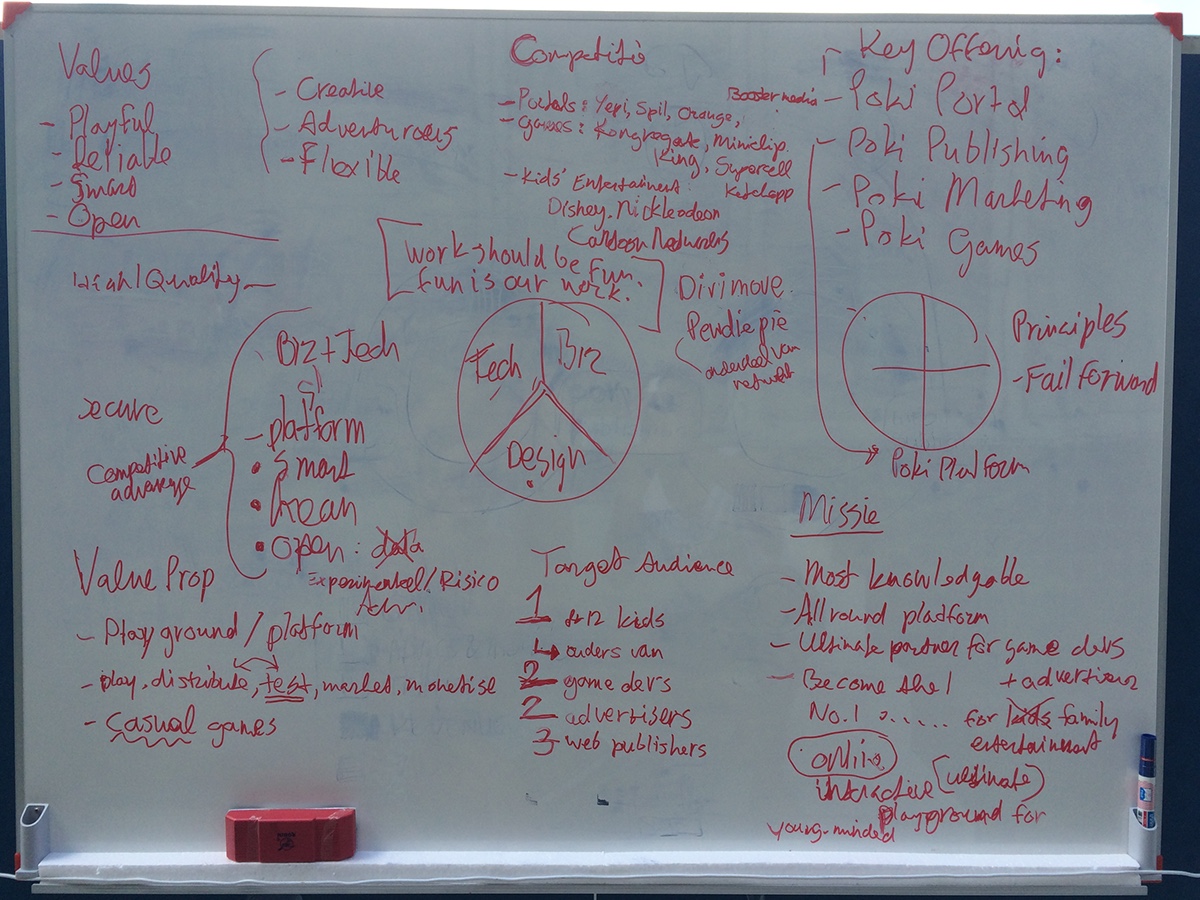 Values
- Playful
- Reliable
- Smart
- Open
- Creative
- Adventurous
- Flexible
High/Quality
Competitio
- Portals: Yepi, Spil, Orange,
Booster media
- games: Kongregate, Miniclip.
King, Supercell
Ketchapp
- Kids' Entertainment:
Disney, Nickleodeon
Cartoon Networks
Key Offering:
- Poki Portal
- Poki Publishing
- Poki Marketing
- Poki Games
Poki Platform
Principles
- Fail forward
work should be fun.
fun is our work.
Divimove.
Pewdiepie
onderdeel van
network
Tech
Biz
Design
Biz + Tech
- platform
• Smart
• Lean
• Open: data
Experimenteel / Risico
Adv.
secure
Competitive
advantage
Value Prop
- Playground / platform
- play, distribute, test, market, monetise
- casual games
Target Audience
1 8-12 kids
↳ ouders van
2 game devs
2 advertisers
3 web publishers
Missie
- Most knowledgable
- All round platform
- Ultimate partner for game devs
+ advertisers
- Become the 1
No. 1 ...... for kids family
entertainment
online
interactive (ultimate)
playground for
young-minded